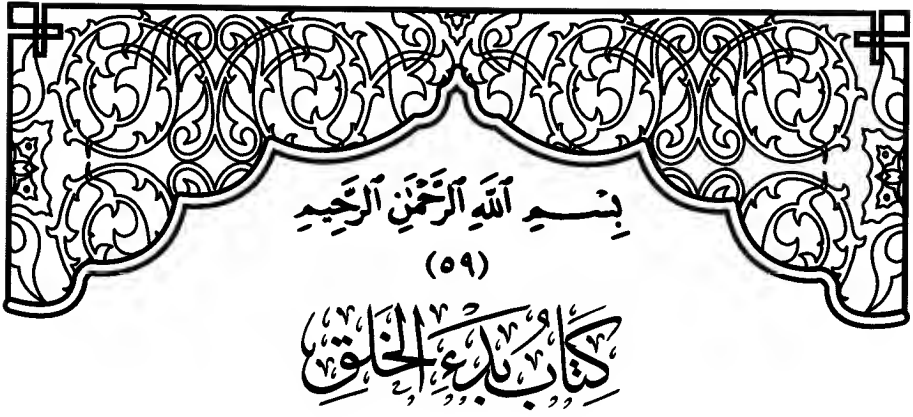 بِسْمِ ٱللَّهِ ٱلرَّحْمَٰنِ ٱلرَّحِيمِ
(٥٩)
كِتَابُ بَدْءِ الْخَلْقِ